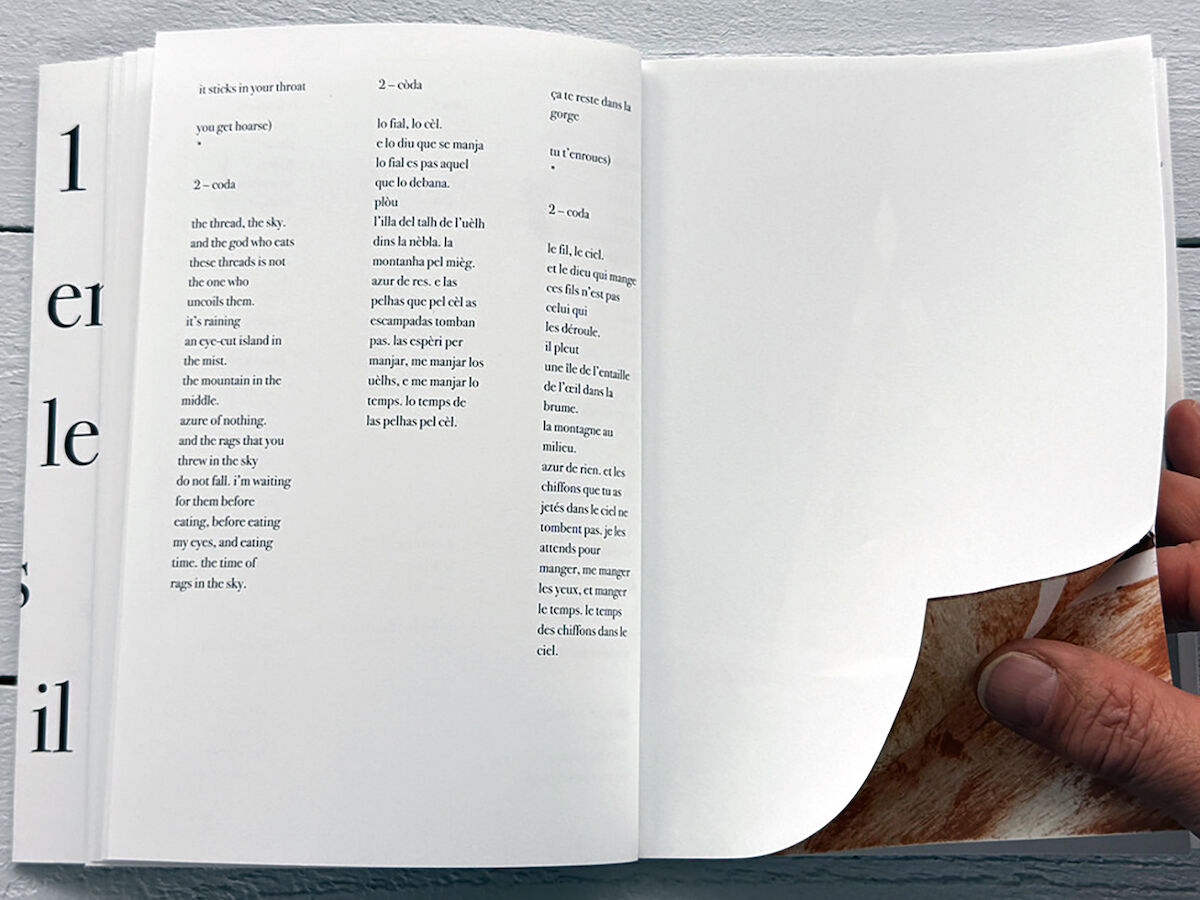 1
le
il
it sticks in your throat
you get hoarse)
*
2 – coda
the thread, the sky.
and the god who eats
these threads is not
the one who
uncoils them.
it's raining
an eye-cut island in
the mist.
the mountain in the
middle.
azure of nothing.
and the rags that you
threw in the sky
do not fall. i'm waiting
for them before
eating, before eating
my eyes, and eating
time. the time of
rags in the sky.
2 – còda
lo fial, lo cèl.
e lo diu que se manja
lo fial es pas aquel
que lo debana.
plòu
l'illa del talh de l'uèlh
dins la nèbla. la
montanha pel mièg.
azur de res. e las
pelhas que pel cèl as
escampadas tomban
pas. las espèri per
manjar, me manjar los
uèlhs, e me manjar lo
temps. lo temps de
las pelhas pel cèl.
ça te reste dans la
gorge
tu t'enroues)
*
2 – coda
le fil, le ciel.
et le dieu qui mange
ces fils n'est pas
celui qui
les déroule.
il pleut
une île de l'entaille
de l'œil dans la
brume.
la montagne au
milieu.
azur de rien. et les
chiffons que tu as
jetés dans le ciel ne
tombent pas. je les
attends pour
manger, me manger
les yeux, et manger
le temps. le temps
des chiffons dans le
ciel.